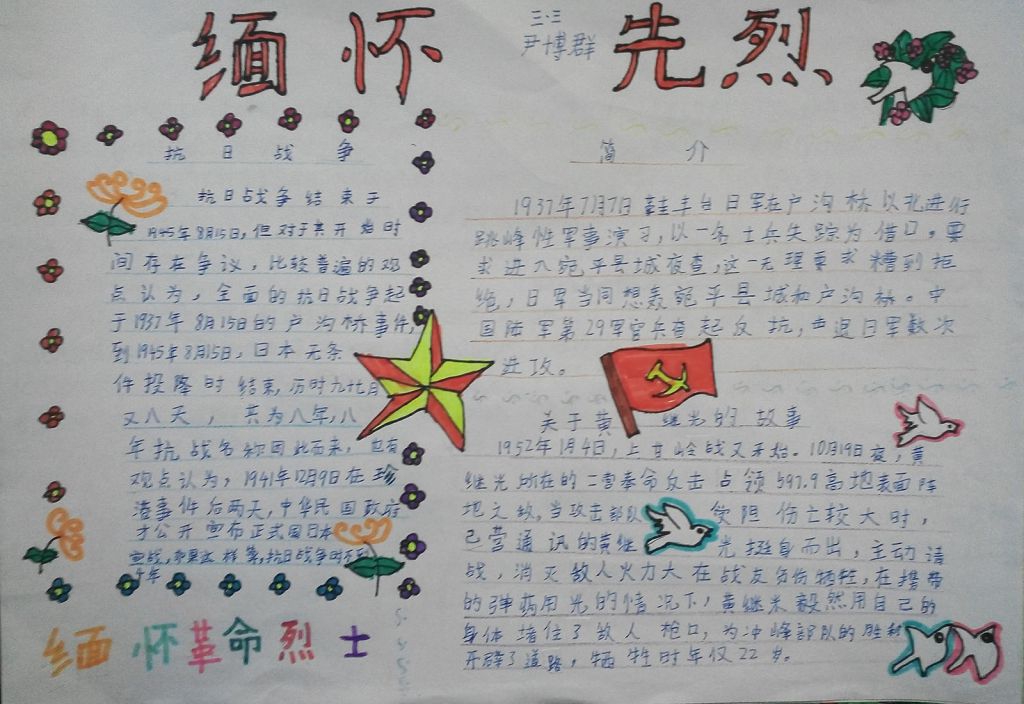 缅怀先烈
三.三
尹博群
抗日战争
抗日战争结束于
1945年8月15日,但对于其开始时
间存在争议,比较普遍的观
点认为,全面的抗日战争起
于1937年8月15日的卢沟桥事件,
到1945年8月15日,日本无条
件投降时结束,历时九七月
又八天,共为八年,八
年抗战名称因此而来,也有
观点认为,1941年12月9日在珍
港事件后两天,中华民国政府
才公开宣布正式国日本
宣战,如果这样算,抗日战争时不到
年
缅怀革命烈士
简介
1937年7月7日驻丰台日军在卢沟桥以北进行
挑峰性军事演习,以一名士兵失踪为借口。要
求进入宛平县城夜查,这一无理要求糟到拒
绝,日军当同想轰宛平县城和卢沟桥。中
国陆军第29军官兵奋起反抗,击退日军数次
进攻。
关于黄继光的故事
1952年1月4日,上甘岭战又开始。10月19日夜,黄
继光所在的二营奉命反击占领597.9高地表面阵
地之敌,当攻击部队受阻伤亡较大时,
已营通讯的黄继光挺身而出,主动请
战,消灭敌人火力大在战友负伤牺牲,在携带
的弹药用光的情况下,黄继光毅然用自己的
身体堵住了敌人枪口,为冲峰部队的胜利
开辟了道路,牺牲时年仅22岁。